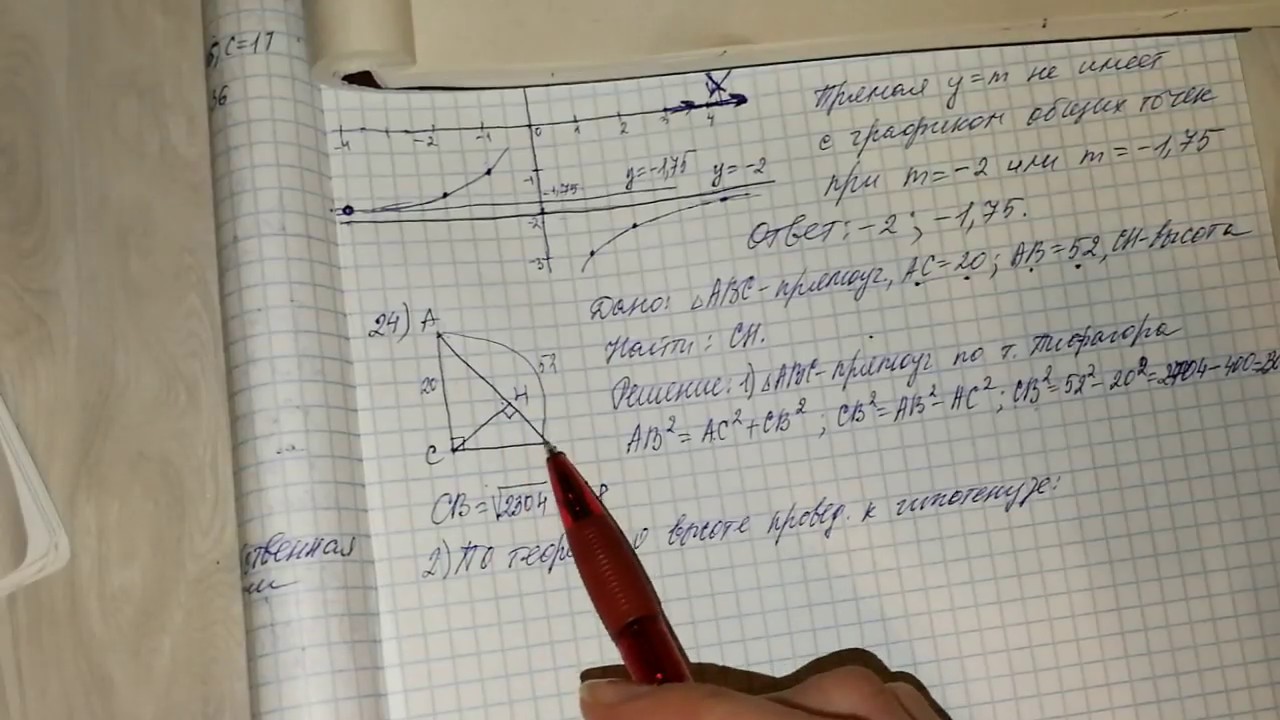 C=17
36
-4 -2 -1 0 1 2 3 4
-1
-1,75 y=-1,75 y=-2
-2
-3
Прямая y=m не имеет
с графиком общих точек
при m=-2 или m=-1,75
Ответ: -2; -1,75.
24) A
20
52
H
C
Дано: △ABC-прямоуг., AC=20; AB=52, CH-высота
Найти: CH.
Решение: 1) △ABC-прямоуг по т. Пифагора
AB²=AC²+CB²; CB²=AB²-AC²; CB²=52²-20²=2704-400=
CB=√2304
2) По о высоте провед. к гипотенузе:
ственная